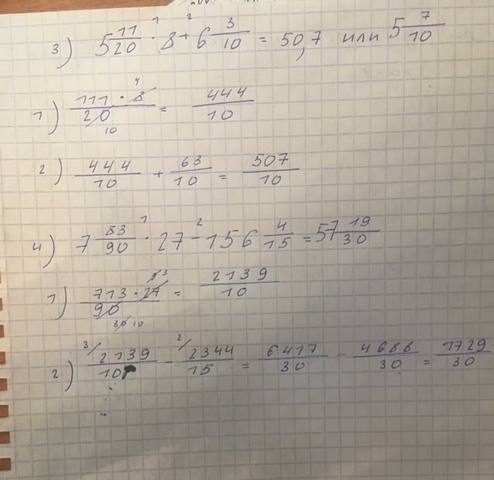 3) 5 11/20 · 8 + 6 3/10 = 50,7 или 5 7/10
1) 111 · 8/20 = 444/10
2) 444/10 + 63/10 = 507/10
4) 7 83/90 · 27 - 156 4/15 = 57 19/30
1) 713 · 27/90 = 2139/10
2) 2139/10 - 2344/15 = 6417/30 - 4688/30 = 1729/30